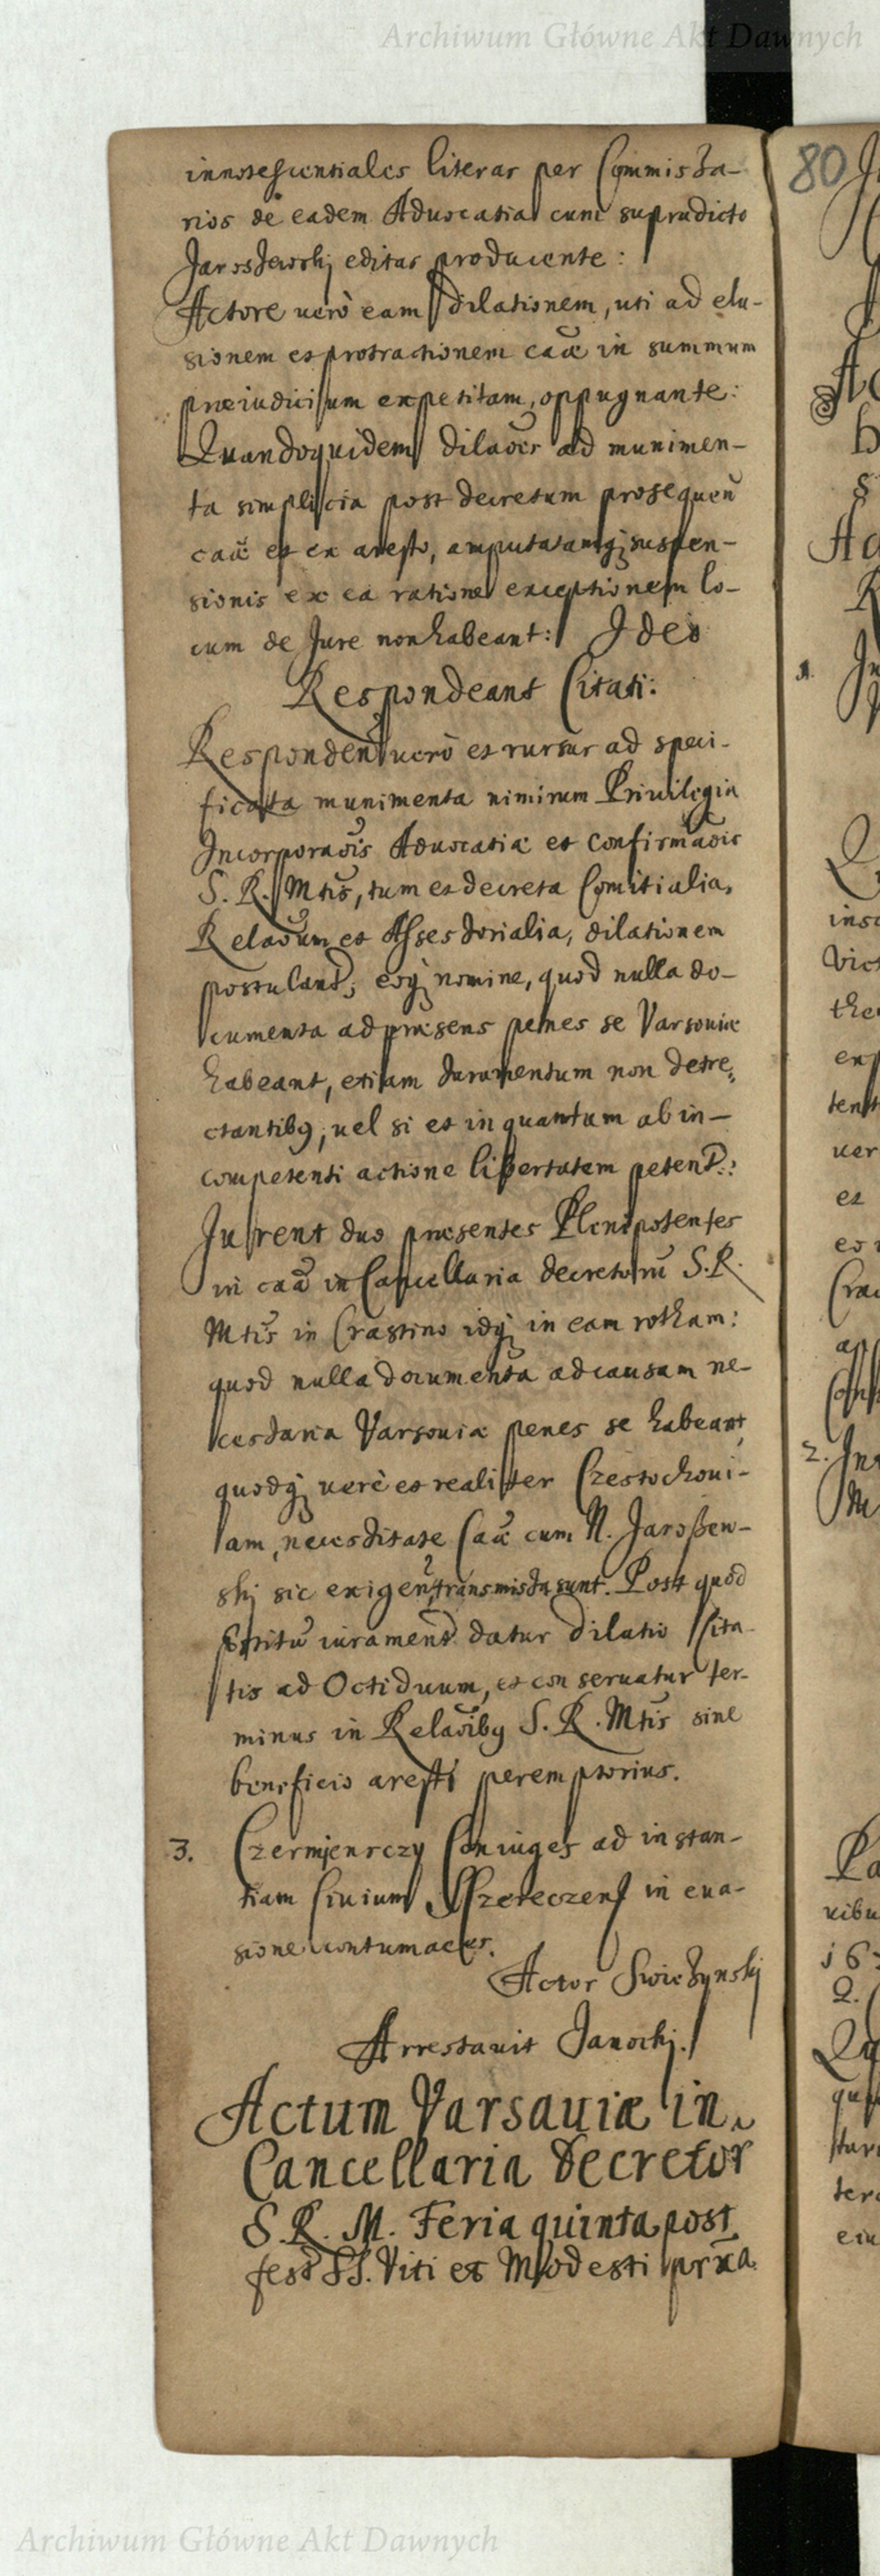 Archiwum Główne Akt Dawnych
80
innotescentiales literas per Commissa-
rios de eadem Aduocatia cum supradicto
Jaroszewskj editas producente:
Actore uerò eam dilationem, uti ad elu-
sionem et protractionem caæ in summum
præiudicium expetitam, oppugnante:
Quandoquidem dilaōis ad munimen-
ta simplicia post decretum prosequeñ
caæ et ex aresto, amputatamq; suspen-
sionis ex ea ratione exceptionem lo-
cum de Jure non habeant: Ideo
Respondeant Citati:
Respondeñ uerò et rursus ad speci-
ficata munimenta nimirum Priuilegia
Incorporaōis Aduocatiæ et Confirmaōis
S. R. Mtis, tum et decreta Comitialia,
Relaōum et Assessorialia, dilationem
postulant; eoq; nomine, quod nulla do-
cumenta ad præsens penes se Varsouiæ
habeant, etiam Juramentum non detre,
ctantibq, uel si et in quantum ab in-
competenti actione libertatem petent:
Jurent duo præsentes Plenipotentes
in caã in Cancellaria decretorũ S. R.
Mtis in Crastino idq; in eam rotham:
quod nulla documenta ad causam ne-
cessaria Varsouiæ penes se habeant,
quodq; uerè et realiter Częstochoui-
am, necessitate Caæ cum N. Jaroszew-
skj sic exigeñ, transmissa sunt. Post quod
præstitũ iurament datur dilatio Cita-
tis ad Octiduum, et conseruatur ter-
minus in Relaōibq S. R. Mtis sine
beneficio aresti peremptorius.
3. Czermjenrczy Coniuges ad instan-
tiam Ciuium Szereczeñ in eua-
sione contumaces.
Actor Swieżynskj
Arrestauit Janockj.
Actum Varsauiæ in
Cancellaria Decretor
S. R. M. Feria quinta post
fest SS. Viti et Modesti prxã
Archiwum Główne Akt Dawnych